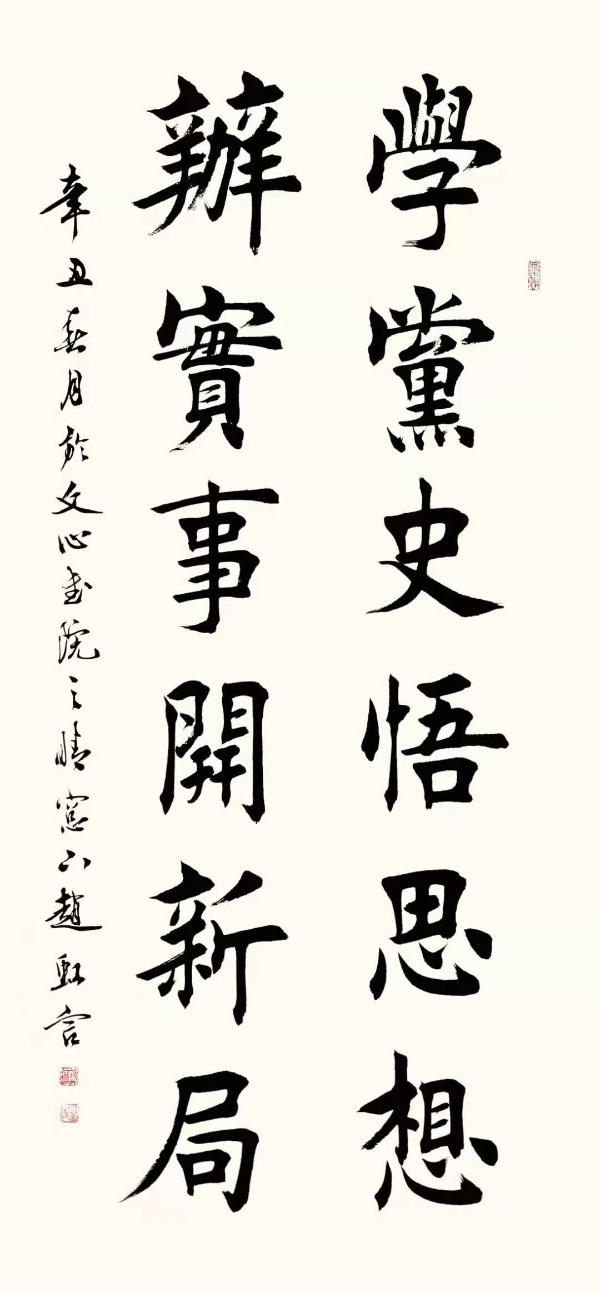 學黨史悟思想
辦實事開新局
辛丑春月於文心書院之晴窗下趙虹言